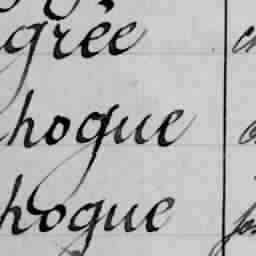 grée
hogue
hogue